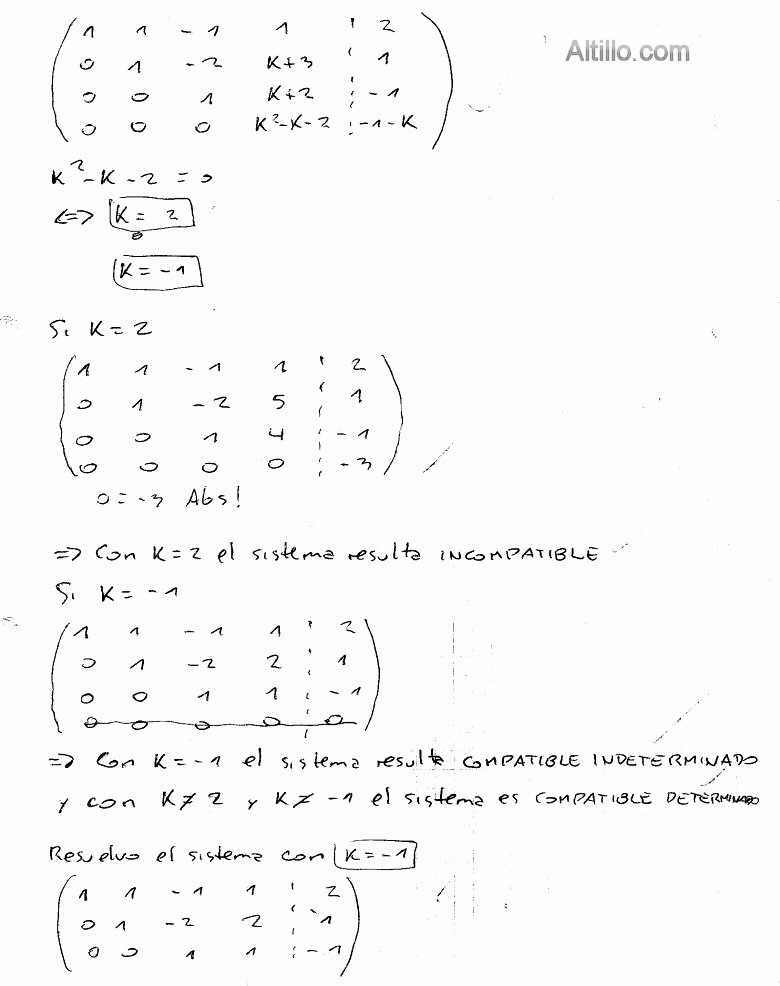 Altillo.com
1 1 -1 1 ¦ 2
0 1 -2 K+3 ¦ 1
0 0 1 K+2 ¦ -1
0 0 0 K²-K-2 ¦ -1-K
K²-K-2 = 0
<=> K = 2
K = -1
Si K = 2
1 1 -1 1 ¦ 2
0 1 -2 5 ¦ 1
0 0 1 4 ¦ -1
0 0 0 0 ¦ -3
0 = -3 Abs!
=> Con K = 2 el sistema resulta INCOMPATIBLE
Si K = -1
1 1 -1 1 ¦ 2
0 1 -2 2 ¦ 1
0 0 1 1 ¦ -1
0 0 0 0 ¦ 0
=> Con K = -1 el sistema resulta COMPATIBLE INDETERMINADO
y con K ≠ 2 y K ≠ -1 el sistema es COMPATIBLE DETERMINADO
Resuelvo el sistema con K = -1
1 1 -1 1 ¦ 2
0 1 -2 2 ¦ 1
0 0 1 1 ¦ -1